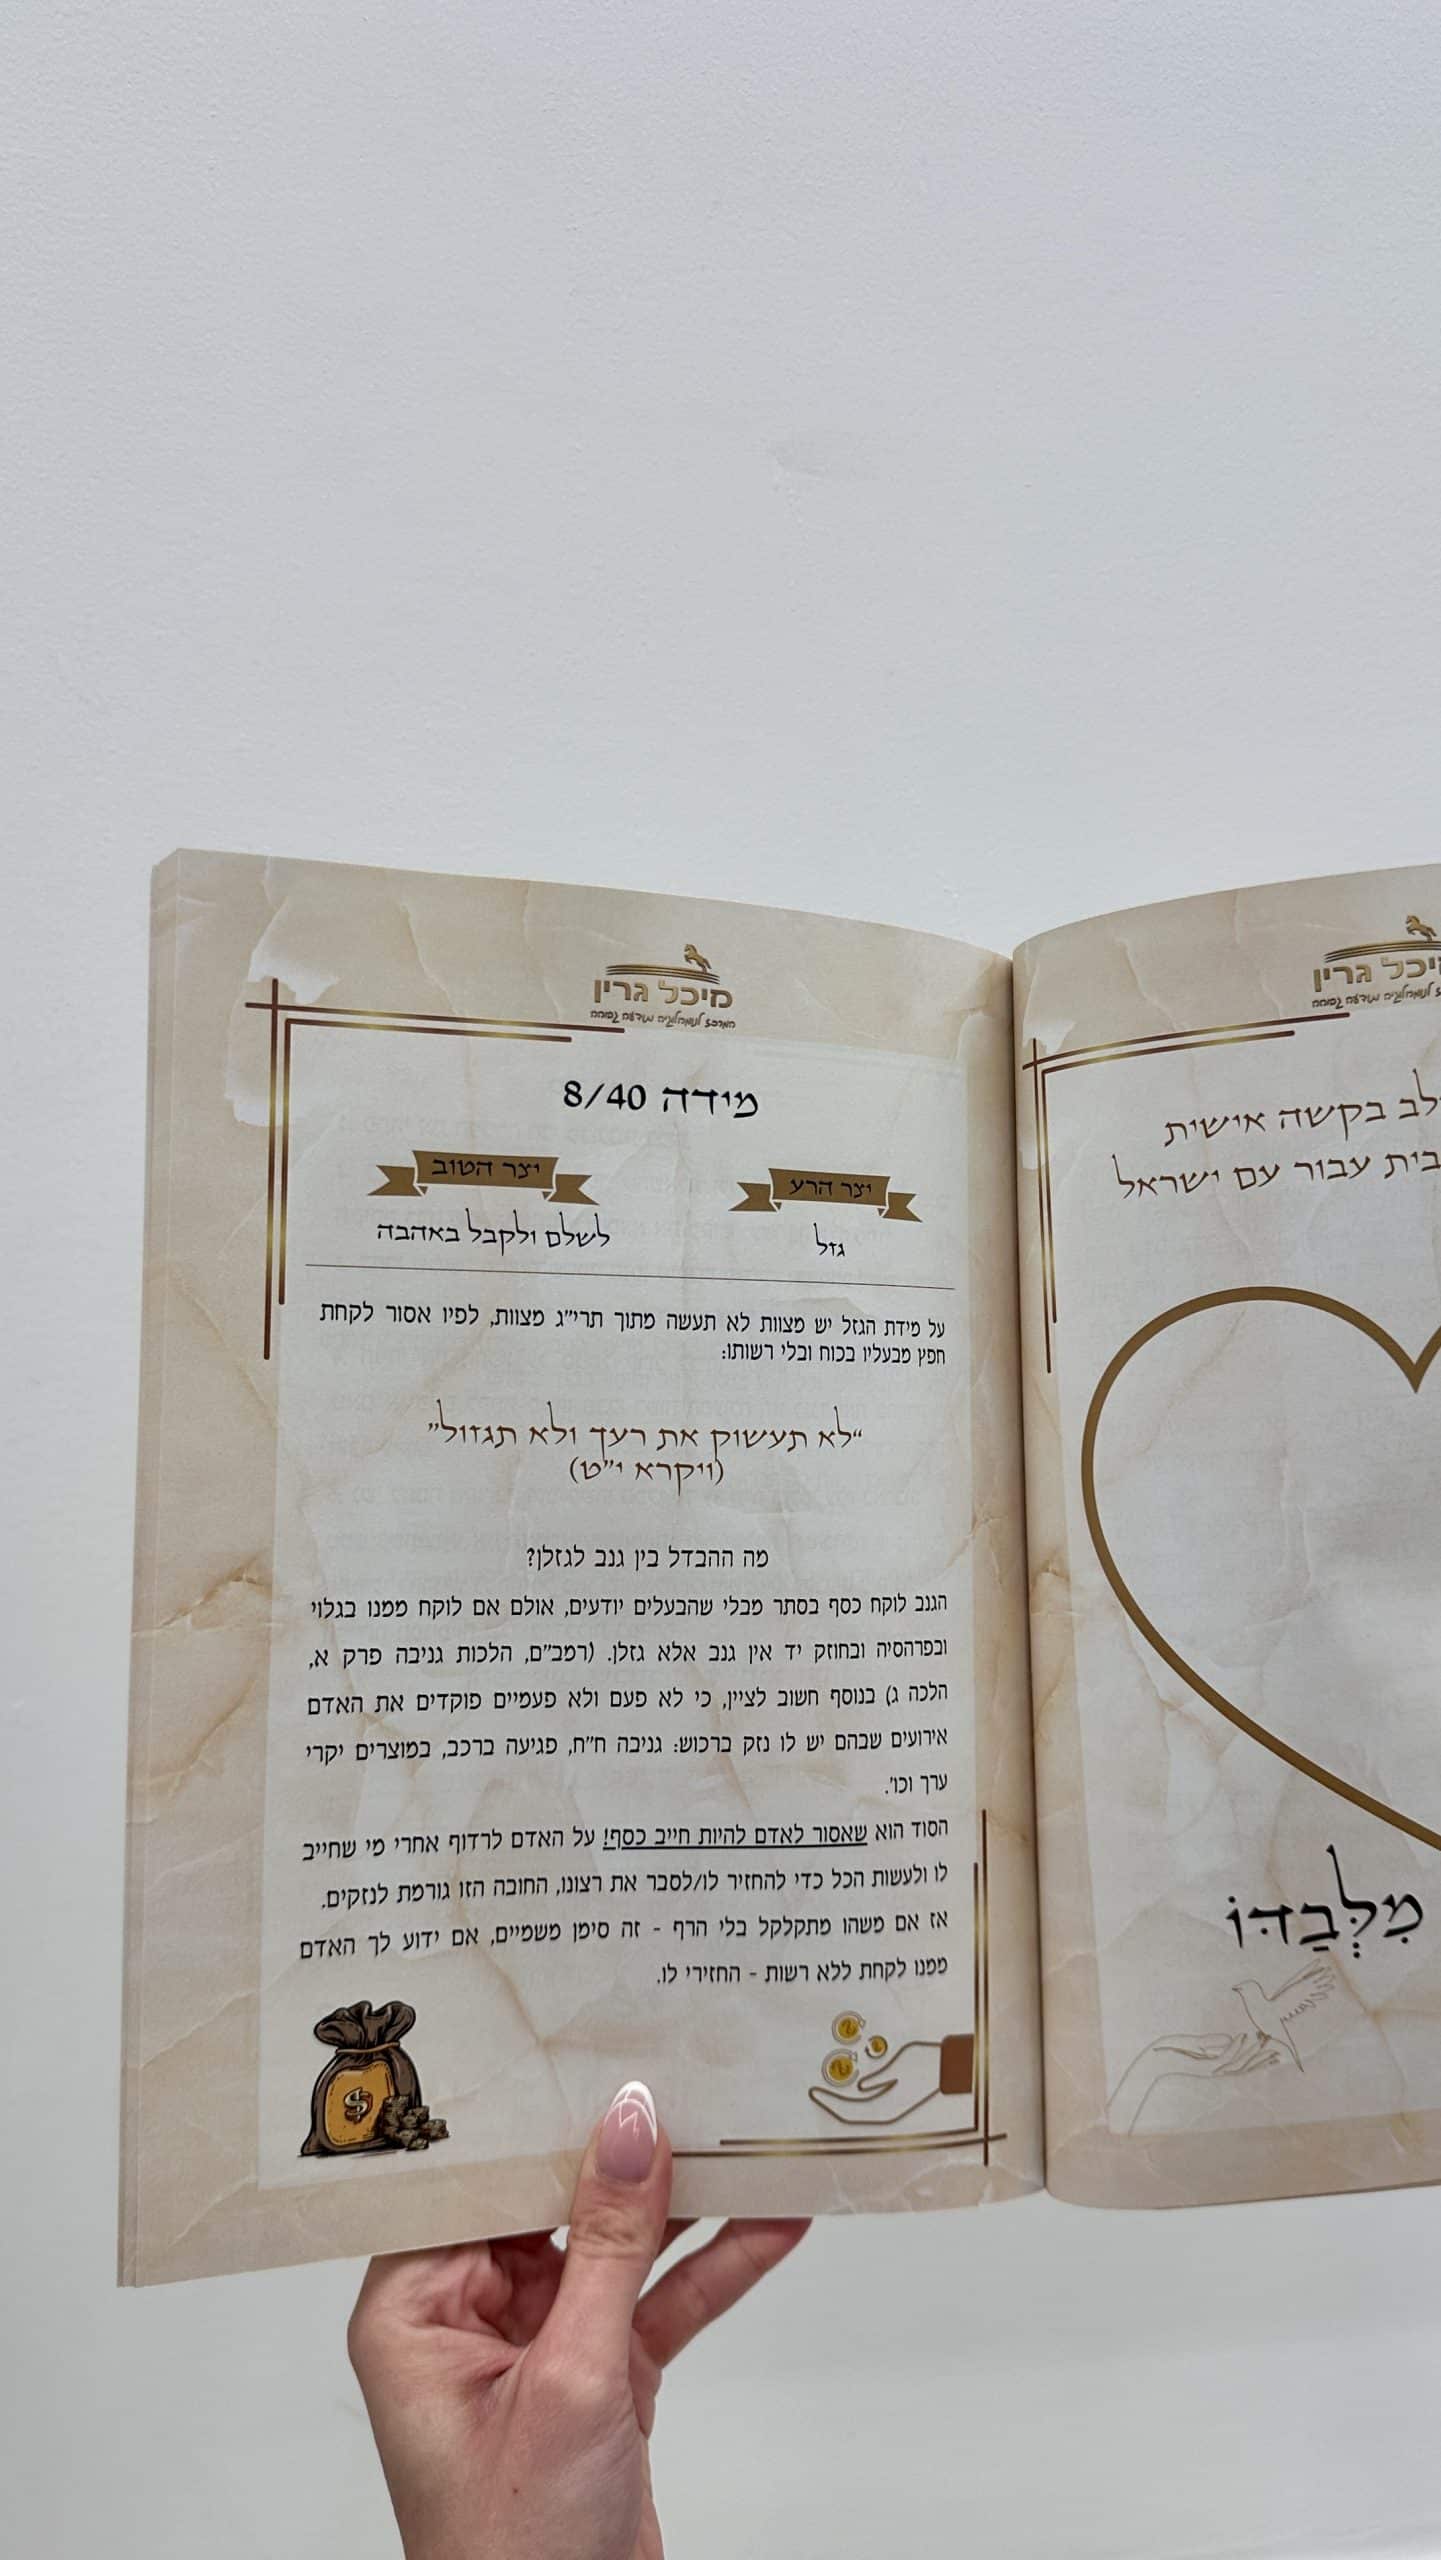 מיכל גרין
המרכז לנומרולוגיה ותודעה גבוהה
מידה 8/40
יצר הרע
גזל
יצר הטוב
לשלם ולקבל באהבה
על מידת הגזל יש מצוות לא תעשה מתוך תרי״ג מצוות, לפיו אסור לקחת
חפץ מבעליו בכוח ובלי רשותו:
“לא תעשוק את רעך ולא תגזול”
(ויקרא י״ט)
מה ההבדל בין גנב לגזלן?
הגנב לוקח כסף בסתר מבלי שהבעלים יודעים, אולם אם לוקח ממנו בגלוי
ובפרהסיה ובחוזק יד אין גנב אלא גזלן. (רמב״ם, הלכות גניבה פרק א,
הלכה ג) בנוסף חשוב לציין, כי לא פעם ולא פעמיים פוקדים את האדם
אירועים שבהם יש לו נזק ברכוש: גניבה ח״ח, פגיעה ברכב, במוצרים יקרי
ערך וכו׳.
הסוד הוא שאסור לאדם להיות חייב כסף! על האדם לרדוף אחרי מי שחייב
לו ולעשות הכל כדי להחזיר לו/לסבר את רצונו, החובה הזו גורמת לנזקים.
אז אם משהו מתקלקל בלי הרף - זה סימן משמיים, אם ידוע לך האדם
ממנו לקחת ללא רשות - החזירי לו.
$
גרין
בקשה אישית
עבור עם ישראל
מִלְּבַדּוֹ